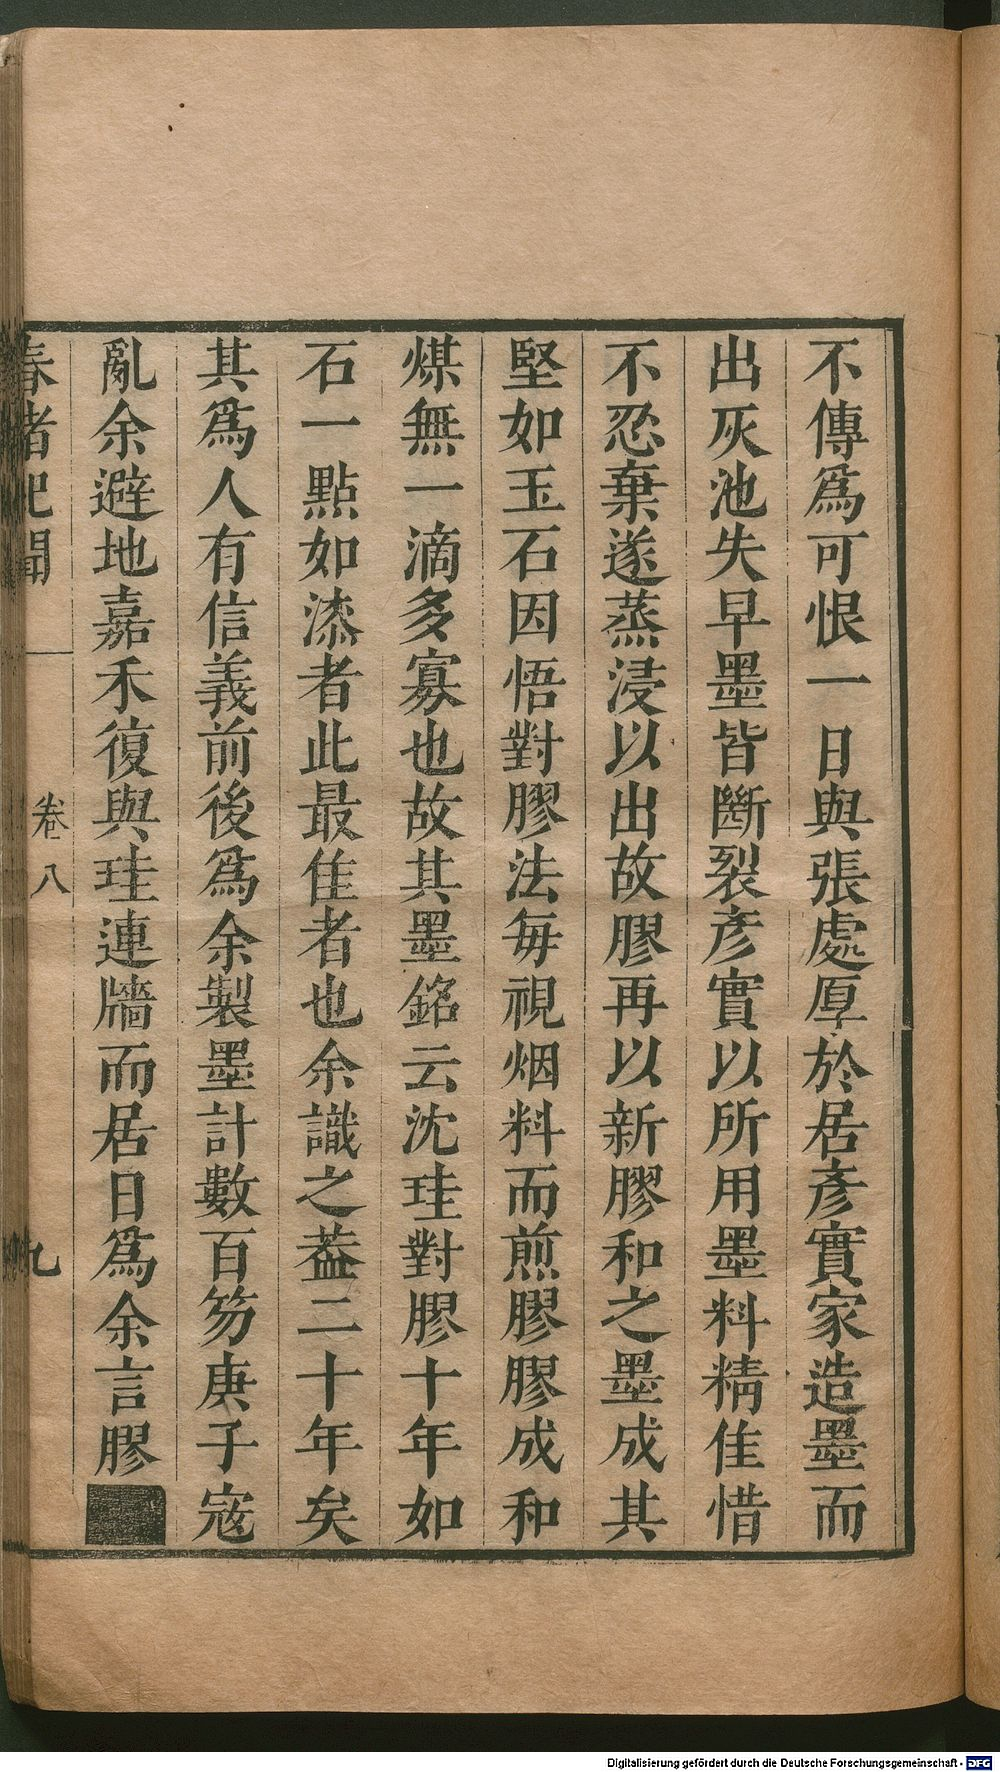 不傳爲可恨一日與張處厚於居彥實家造墨而
出灰池失早墨皆斷裂彥實以所用墨料精佳惜
不忍棄遂蒸浸以出故膠再以新膠和之墨成其
堅如玉石因悟對膠法每視烟料而煎膠膠成和
煤無一滴多寡也故其墨銘云沈珪對膠十年如
石一點如漆者此最佳者也余識之葢二十年矣
其爲人有信義前後爲余製墨計數百笏庚子寇
亂余避地嘉禾復與珪連牆而居日爲余言膠
春渚紀聞 卷八 九
Digitalisierung gefördert durch die Deutsche Forschungsgemeinschaft - DFG